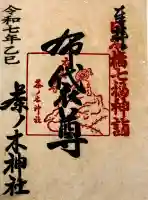 日本橋七福神詣
布袋尊
茶ノ木神社
令和七年乙巳
茶ノ木神社